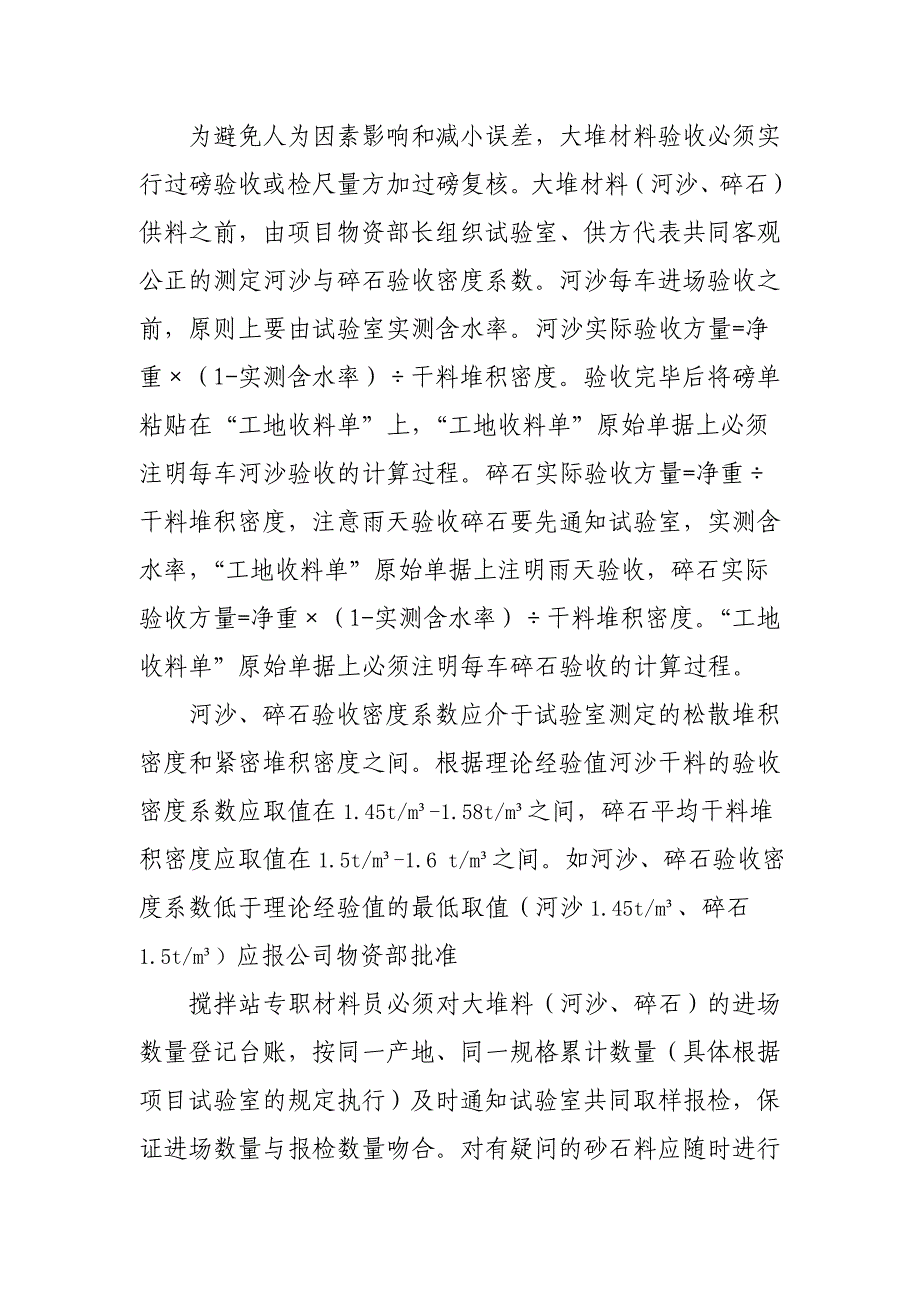 为避免人为因素影响和减小误差，大堆材料验收必须实
行过磅验收或检尺量方加过磅复核。大堆材料（河沙、碎石）
供料之前，由项目物资部长组织试验室、供方代表共同客观
公正的测定河沙与碎石验收密度系数。河沙每车进场验收之
前，原则上要由试验室实测含水率。河沙实际验收方量=净
重×（1-实测含水率）÷干料堆积密度。验收完毕后将磅单
粘贴在“工地收料单”上，“工地收料单”原始单据上必须
注明每车河沙验收的计算过程。碎石实际验收方量=净重÷
干料堆积密度，注意雨天验收碎石要先通知试验室，实测含
水率，“工地收料单”原始单据上注明雨天验收，碎石实际
验收方量=净重×（1-实测含水率）÷干料堆积密度。“工地
收料单”原始单据上必须注明每车碎石验收的计算过程。
河沙、碎石验收密度系数应介于试验室测定的松散堆积
密度和紧密堆积密度之间。根据理论经验值河沙干料的验收
密度系数应取值在1.45t/m³-1.58t/m³之间，碎石平均干料堆
积密度应取值在1.5t/m³-1.6 t/m³之间。如河沙、碎石验收密
度系数低于理论经验值的最低取值（河沙1.45t/m³、碎石
1.5t/m³）应报公司物资部批准
搅拌站专职材料员必须对大堆料（河沙、碎石）的进场
数量登记台账，按同一产地、同一规格累计数量（具体根据
项目试验室的规定执行）及时通知试验室共同取样报检，保
证进场数量与报检数量吻合。对有疑问的砂石料应随时进行